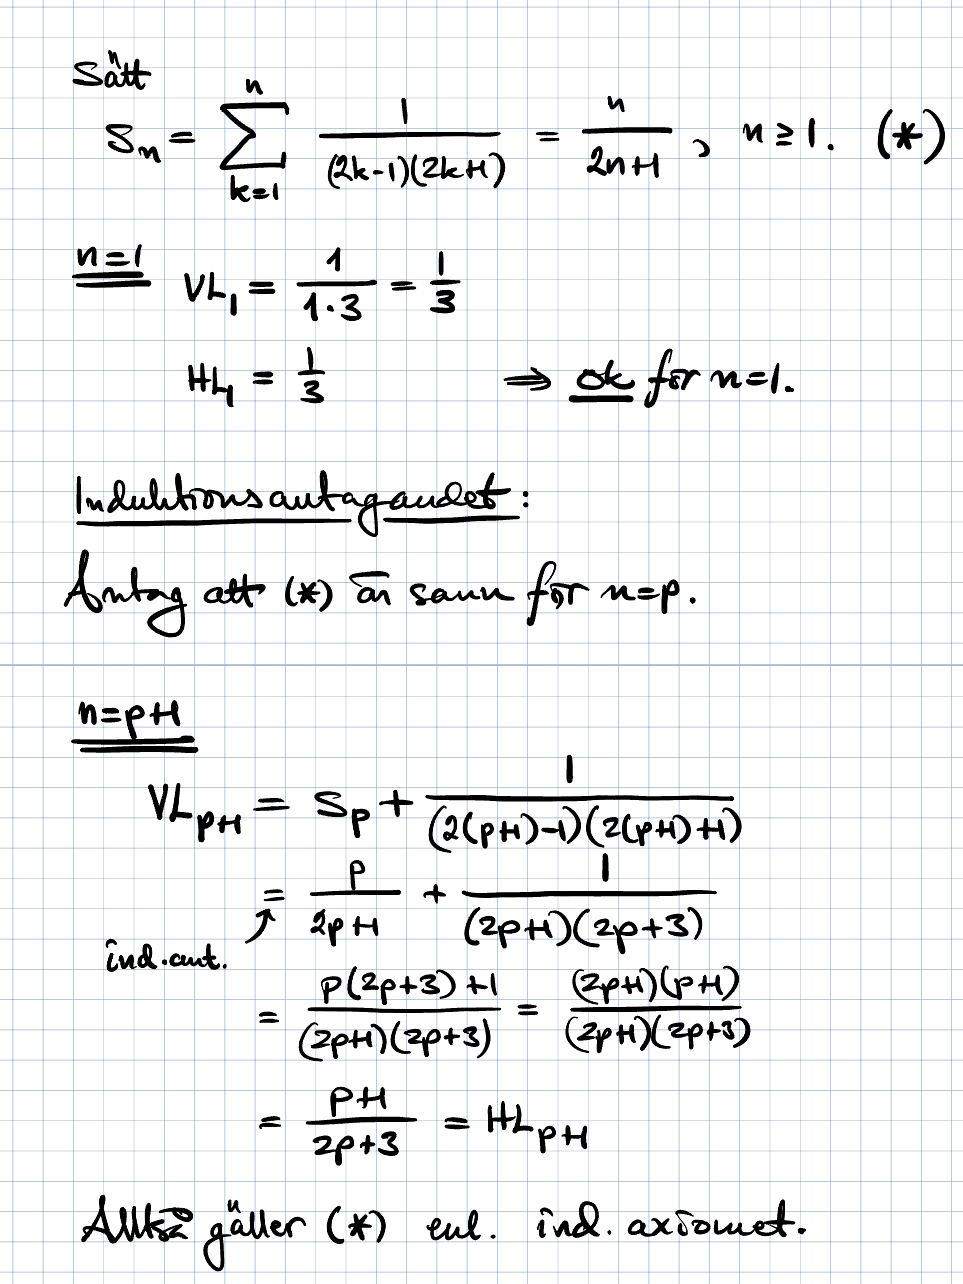 Sätt
Sₙ = ∑_{k=1}^{n} 1/((2k-1)(2k+1)) = n/(2n+1), n ≥ 1. (*)
n=1 VL₁ = 1/(1·3) = 1/3
HL₁ = 1/3 ⇒ ok för n=1.
Induktionsantagandet:
Antag att (*) är sann för n=p.
n=p+1
VL_{p+1} = S_p + 1/((2(p+1)-1)(2(p+1)+1))
= p/(2p+1) + 1/((2p+1)(2p+3))
ind.ant.
= (p(2p+3)+1)/((2p+1)(2p+3)) = ((2p+1)(p+1))/((2p+1)(2p+3))
= (p+1)/(2p+3) = HL_{p+1}
Alltså gäller (*) enl. ind. axiomet.